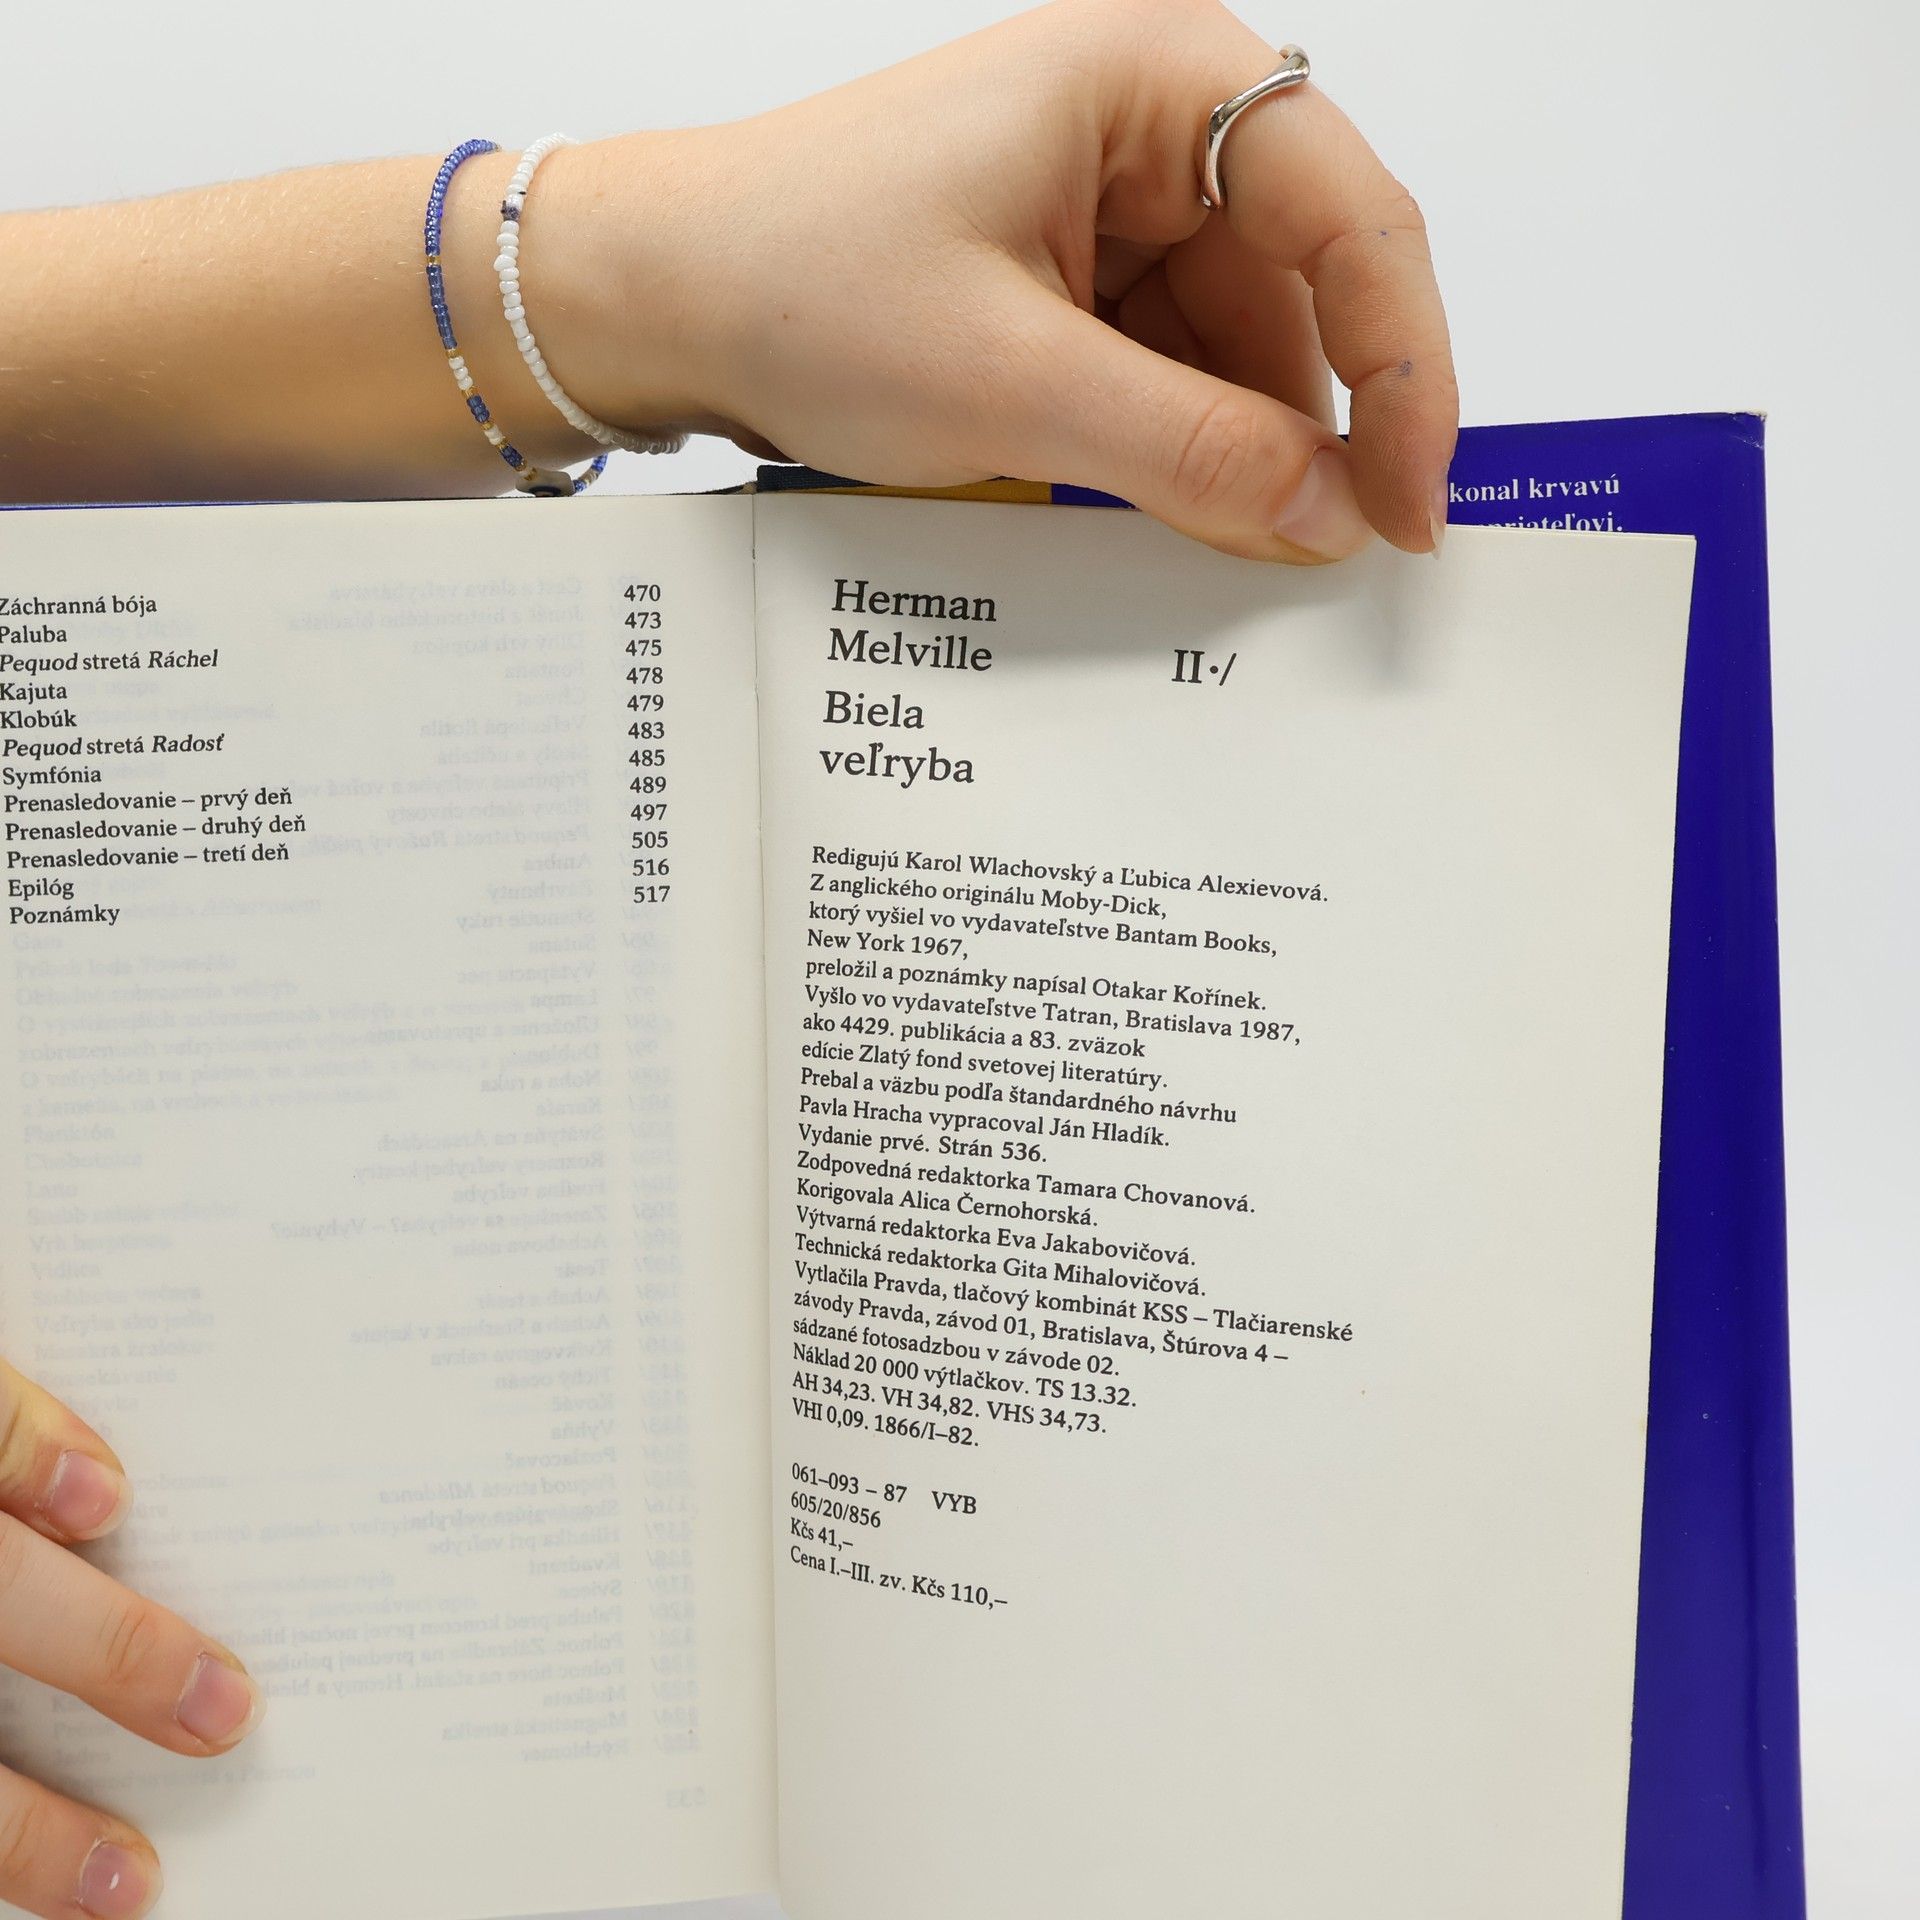 konal krvavú
priateľovi.
Záchranná bója 470
Paluba 473
Pequod stretá Ráchel 475
Kajuta 478
Klobúk 479
Pequod stretá Radosť 483
Symfónia 485
Prenasledovanie – prvý deň 489
Prenasledovanie – druhý deň 497
Prenasledovanie – tretí deň 505
Epilóg 516
Poznámky 517
Herman
Melville II·/
Biela
veľryba
Redigujú Karol Wlachovský a Ľubica Alexievová.
Z anglického originálu Moby-Dick,
ktorý vyšiel vo vydavateľstve Bantam Books,
New York 1967,
preložil a poznámky napísal Otakar Kořínek.
Vyšlo vo vydavateľstve Tatran, Bratislava 1987,
ako 4429. publikácia a 83. zväzok
edície Zlatý fond svetovej literatúry.
Prebal a väzbu podľa štandardného návrhu
Pavla Hracha vypracoval Ján Hladík.
Vydanie prvé. Strán 536.
Zodpovedná redaktorka Tamara Chovanová.
Korigovala Alica Černohorská.
Výtvarná redaktorka Eva Jakabovičová.
Technická redaktorka Gita Mihalovičová.
Vytlačila Pravda, tlačový kombinát KSS – Tlačiarenské
závody Pravda, závod 01, Bratislava, Štúrova 4 –
sádzané fotosadzbou v závode 02.
Náklad 20 000 výtlačkov. TS 13.32.
AH 34,23. VH 34,82. VHS 34,73.
VHI 0,09. 1866/I–82.
061–093 – 87 VYB
605/20/856
Kčs 41,–
Cena I.–III. zv. Kčs 110,–